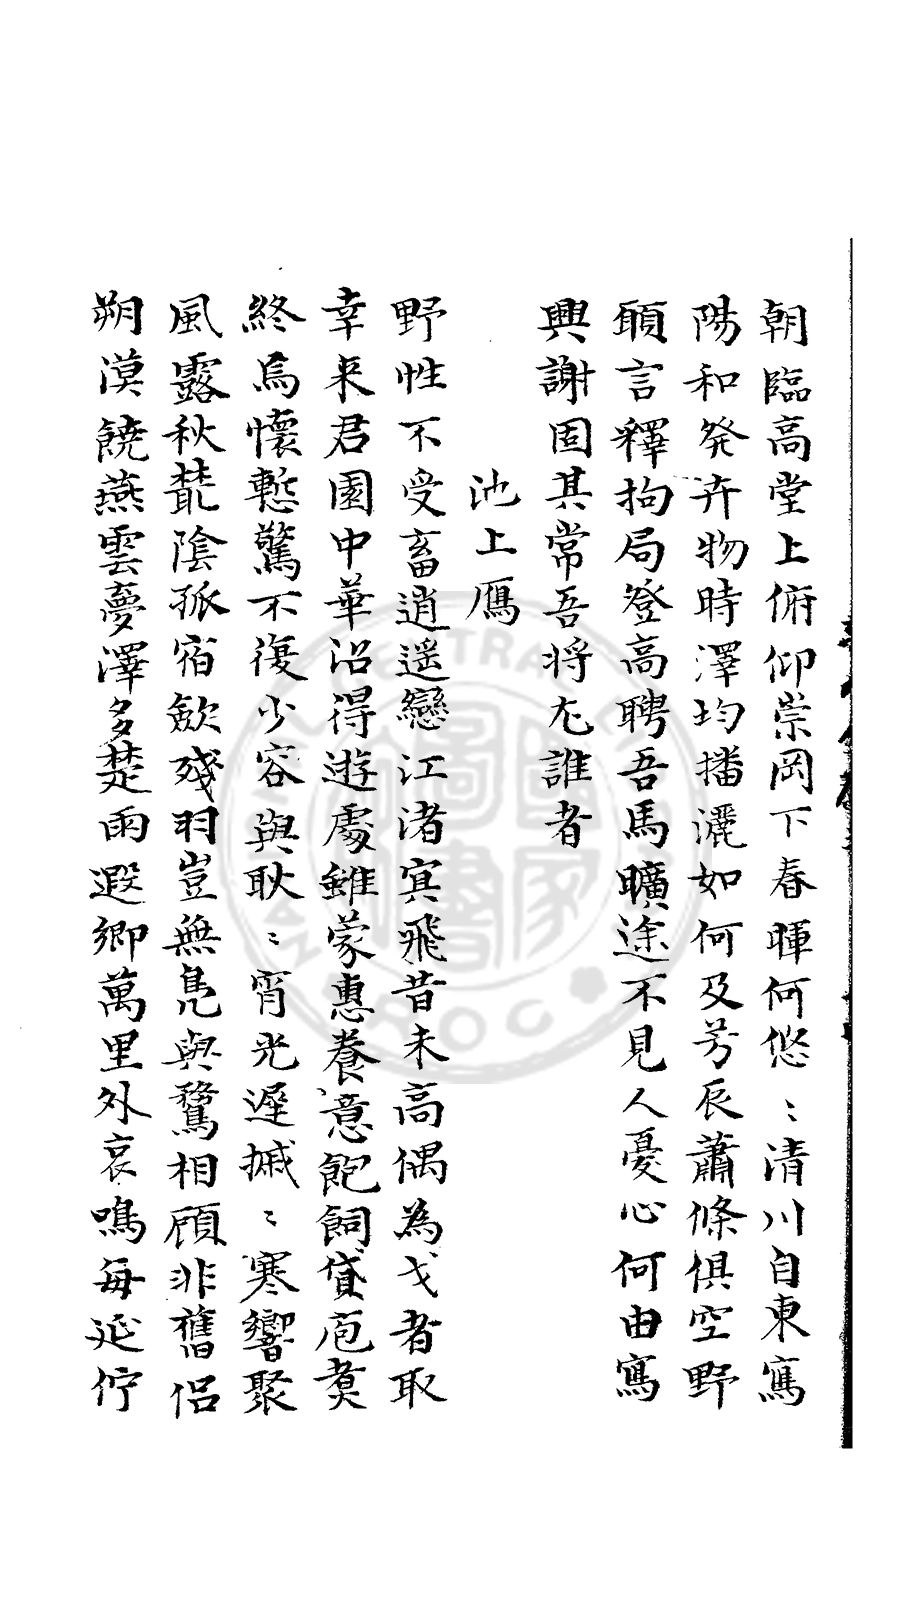 朝臨高堂上俯仰崇岡下春暉何悠〻清川自東寫
陽和發卉物時澤均播灑如何及芳辰蕭條俱空野
願言釋拘局登高聘吾馬曠途不見人憂心何由寫
興謝固其常吾將尤誰者
池上鴈
野性不受畜逍遥戀江渚冥飛昔未高偶為弋者取
幸来君園中華沼得遊處雖蒙惠養意飽飼貸庖煑
終焉懷慙驚不復少容與耿〻宵光遲摵〻寒響聚
風露秋叢陰孤宿斂殘羽豈無鳧與鶩相顧非舊侣
朔漠饒燕雲夢澤多楚雨遐鄉萬里外哀鳴每延佇